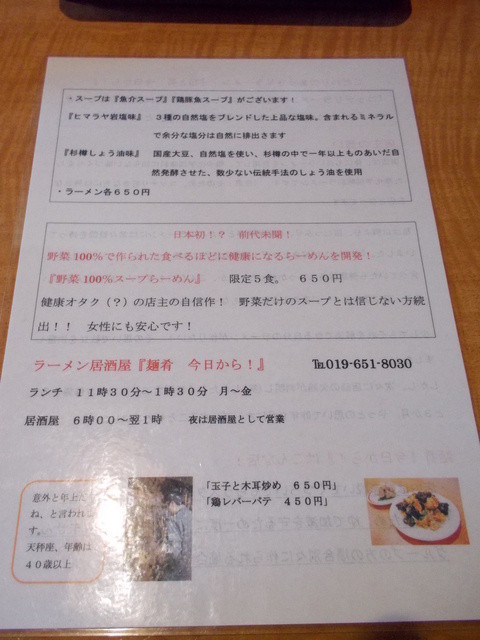 ・スープは『魚介スープ』『鶏豚魚スープ』がございます！
『ヒマラヤ岩塩味』　３種の自然塩をブレンドした上品な塩味。含まれるミネラル
で余分な塩分は自然に排出さます
『杉樽しょう油味』　国産大豆、自然塩を使い、杉樽の中で一年以上ものあいだ自
然発酵させた、数少ない伝統手法のしょう油を使用
・ラーメン各６５０円
日本初！？　前代未聞！
野菜 100％で作られた食べるほどに健康になるらーめんを開発！
『野菜 100％スープらーめん』　限定５食。　６５０円
健康オタク（？）の店主の自信作！　野菜だけのスープとは信じない方続
出！！　女性にも安心です！
ラーメン居酒屋『麺肴　今日から！』　℡019-651-8030
ランチ　１１時３０分～１時３０分　月～金
居酒屋　６時００～翌１時　夜は居酒屋として営業
意外と年上だ
ね、と言われ
す。
天秤座、年齢は
４０歳以上
「玉子と木耳炒め　６５０円」
「鶏レバーパテ　４５０円」